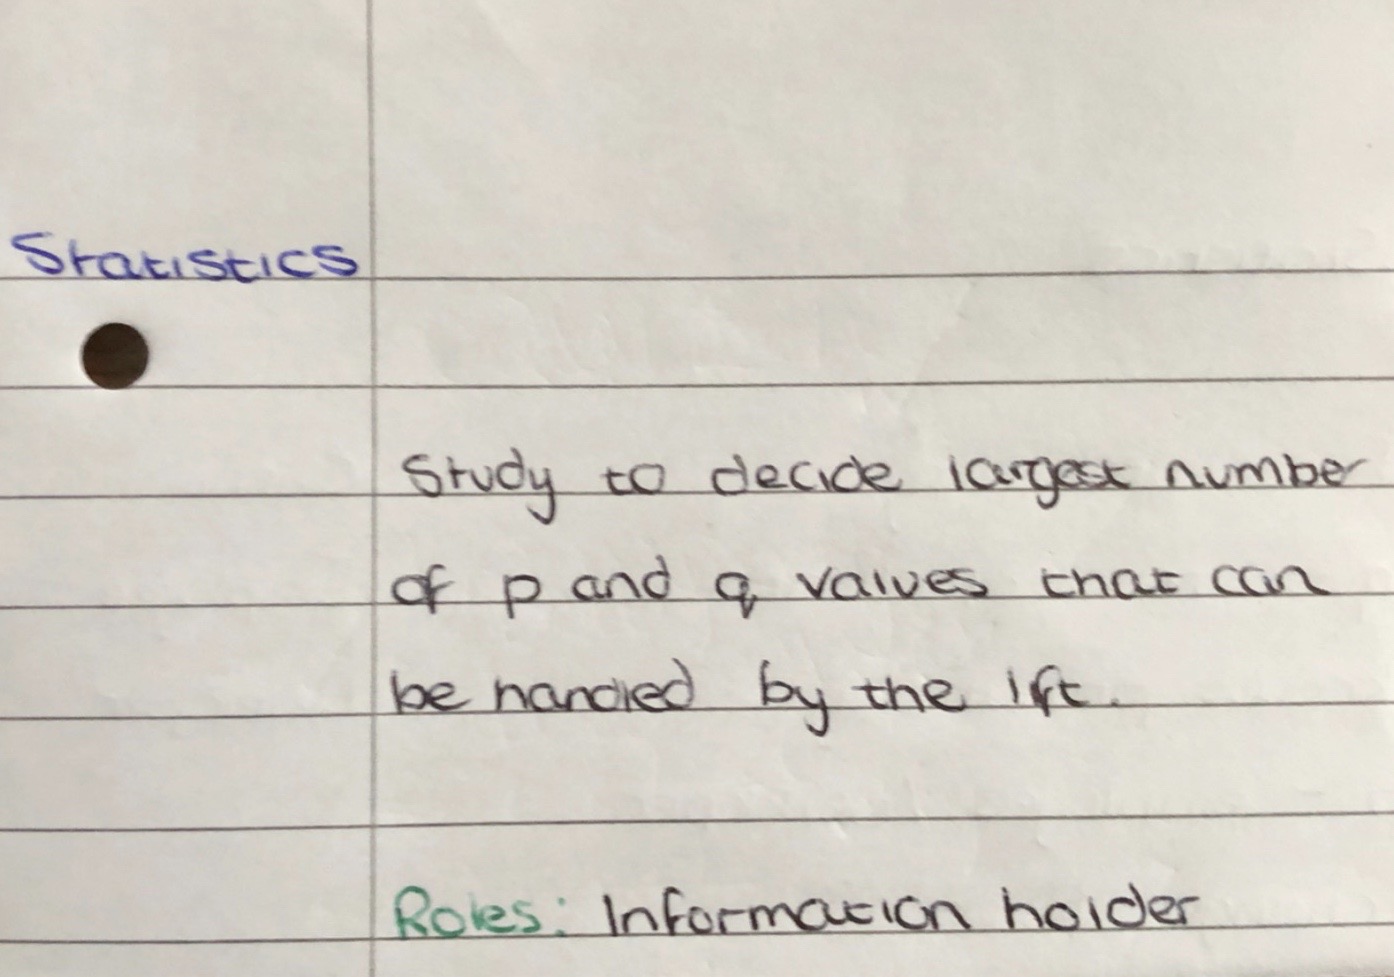 Statistics
Study to decide largest number
of p and q values that can
be handled by the lift.
Roles: Information holder